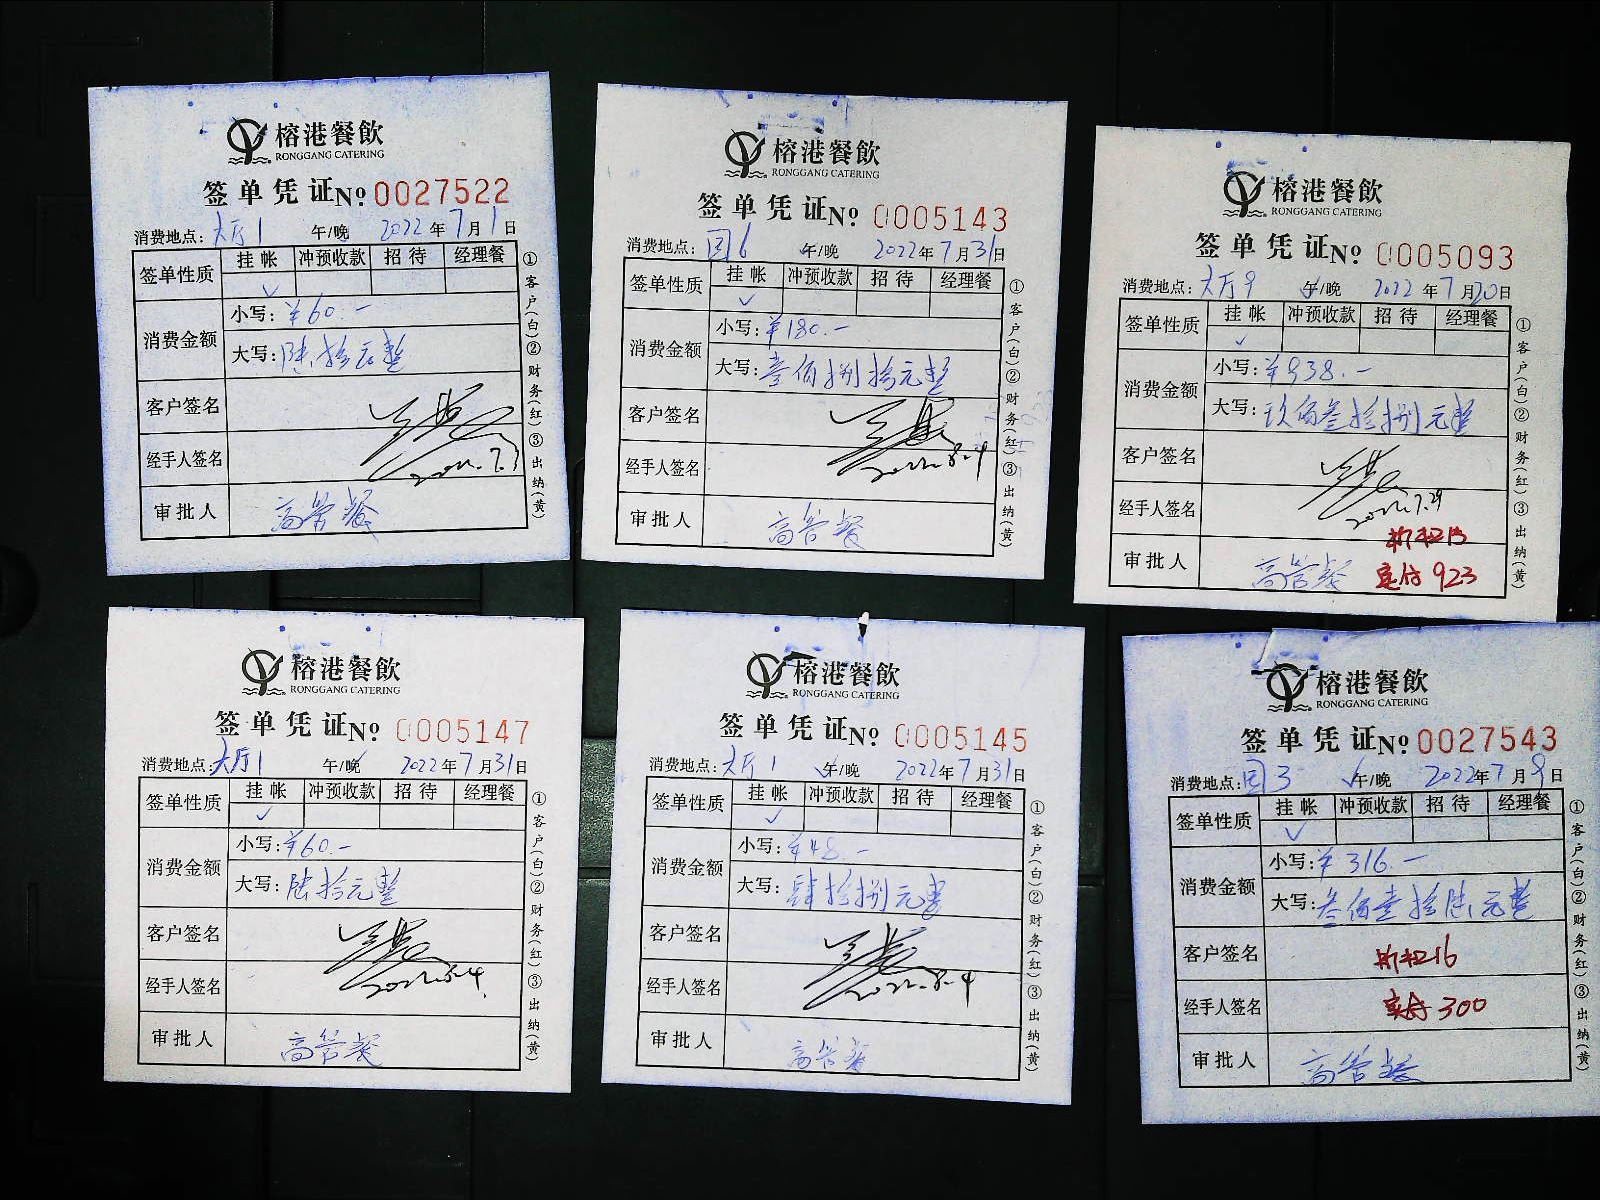 榕港餐飲
RONGGANG CATERING
签单凭证№ 0027522
消费地点：大厅1 午/晚 2022年7月1日
签单性质 挂帐 冲预收款 招待 经理餐
✓
消费金额
小写：￥60.—
大写：陆拾元整
客户签名
经手人签名
2022.7.3
审批人 高管餐
①客户(白)②财务(红)③出纳(黄)
榕港餐飲
RONGGANG CATERING
签单凭证№ 0005143
消费地点：园6 午/晚 2022年7月31日
签单性质 挂帐 冲预收款 招待 经理餐
✓
消费金额
小写：￥180.—
大写：壹佰捌拾元整
客户签名
经手人签名
2022.8.4
审批人 高管餐
①客户(白)②财务(红)③出纳(黄)
榕港餐飲
RONGGANG CATERING
签单凭证№ 0005093
消费地点：大厅9 午/晚 2022年7月20日
签单性质 挂帐 冲预收款 招待 经理餐
✓
消费金额
小写：￥938.—
大写：玖佰叁拾捌元整
客户签名
经手人签名
2022.7.29
折扣15
审批人 高管餐 实付923
①客户(白)②财务(红)③出纳(黄)
榕港餐飲
RONGGANG CATERING
签单凭证№ 0005147
消费地点：大厅1 午/晚 2022年7月31日
签单性质 挂帐 冲预收款 招待 经理餐
✓
消费金额
小写：￥60.—
大写：陆拾元整
客户签名
经手人签名
2022.8.4
审批人 高管餐
①客户(白)②财务(红)③出纳(黄)
榕港餐飲
RONGGANG CATERING
签单凭证№ 0005145
消费地点：大厅1 午/晚 2022年7月31日
签单性质 挂帐 冲预收款 招待 经理餐
✓
消费金额
小写：￥48.—
大写：肆拾捌元整
客户签名
经手人签名
2022.8.4
审批人 高管餐
①客户(白)②财务(红)③出纳(黄)
榕港餐飲
RONGGANG CATERING
签单凭证№ 0027543
消费地点：园3 午/晚 2022年7月9日
签单性质 挂帐 冲预收款 招待 经理餐
✓
消费金额
小写：￥316.—
大写：叁佰壹拾陆元整
客户签名 折扣16
经手人签名 实付300
审批人 高管餐
①客户(白)②财务(红)③出纳(黄)